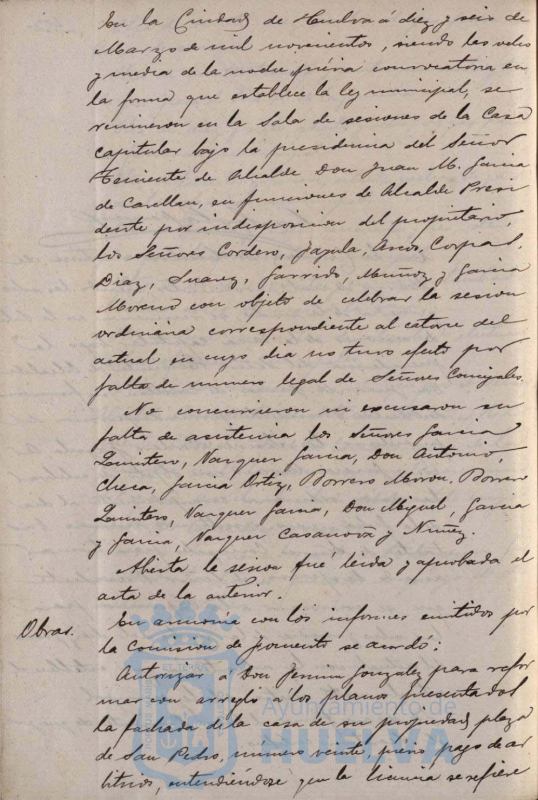 En la Ciudad de Huelva á diez y seis de
Marzo de mil novecientos, siendo las ocho
y media de la noche, prévia convocatoria en
la forma que establece la ley municipal, se
reunieron en la Sala de sesiones de la Casa
capitular bajo la presidencia del Señor
Teniente de Alcalde Don Juan M. Garcia
de Carellan, en funciones de Alcalde Presi
dente por indisposicion del propietario,
los Señores Cordero, Jazula, Arcos, Corpas,
Diaz, Suarez, Garrido, Muñoz y Garcia
Moreno con objeto de celebrar la sesion
ordinaria correspondiente al catorce del
actual en cuyo dia no tuvo efecto por
falta de numero legal de Señores Concejales.
No concurrieron ni excusaron su
falta de asistencia los Señores Garcia
Quintero, Vazquez Garcia, Don Antonio,
Checa, Garcia Ortiz, Borrero Moron, Borrero
Quintero, Vazquez Garcia, Don Miguel, Garcia
y Garcia, Vazquez Casanova y Nuñez.
Abierta la sesion fué leida y aprobada el
acta de la anterior.
Obras.
En armonia con los informes emitidos por
la Comision de Fomento se acordó:
Autorizar á Don Gonzalez para refor
mar con arreglo á los planos presentados
la fachada de la casa de su propiedad plaza
de San Pedro, número veinte, previo pago de ar
bitrios, entendiéndose que la licencia se refiere
Ayuntamiento de
HUELVA